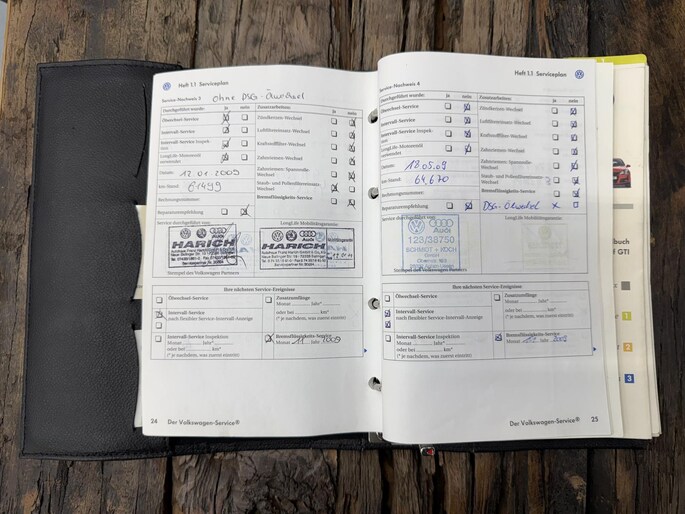 Heft 1.1 Serviceplan
Service-Nachweis 3
ohne DSG-Ölwechsel
Durchgeführt wurde: ja nein
Ölwechsel-Service
Intervall-Service
Intervall-Service Inspektion
LongLife-Motorenöl verwendet
Datum: 12.01.2009
km-Stand: 61499
Rechnungsnummer:
Reparaturempfehlung
Zusatzarbeiten: ja nein
Zündkerzen-Wechsel
Luftfiltereinsatz-Wechsel
Kraftstofffilter-Wechsel
Zahnriemen-Wechsel
Zahnriemen-Spannrolle-Wechsel
Staub- und Pollenfiltereinsatz-Wechsel
Bremsflüssigkeits-Service
Service durchgeführt von:
LongLife Mobilitätsgarantie:
Audi
HARICH
Audi
HARICH
Stempel des Volkswagen Partners
Ihre nächsten Service-Ereignisse
Ölwechsel-Service
Intervall-Service
nach flexibler Service-Intervall-Anzeige
Intervall-Service Inspektion
Monat Jahr*
oder bei km*
(* je nachdem, was zuerst eintritt)
Zusatzumfänge
Monat Jahr*
oder bei km*
(* je nachdem, was zuerst eintritt)
Bremsflüssigkeits-Service
Monat 11 Jahr 2009
24 Der Volkswagen-Service®
Heft 1.1 Serviceplan
Service-Nachweis 4
Durchgeführt wurde: ja nein
Ölwechsel-Service
Intervall-Service
Intervall-Service Inspektion
LongLife-Motorenöl verwendet
Datum: 18.05.09
km-Stand: 64.670
Rechnungsnummer:
Reparaturempfehlung
Zusatzarbeiten: ja nein
Zündkerzen-Wechsel
Luftfiltereinsatz-Wechsel
Kraftstofffilter-Wechsel
Zahnriemen-Wechsel
Zahnriemen-Spannrolle-Wechsel
Staub- und Pollenfiltereinsatz-Wechsel
Bremsflüssigkeits-Service
DSG-Ölwechsel x
Service durchgeführt von:
LongLife Mobilitätsgarantie:
Audi
128/38750
SCHMIDT + KOCH
GmbH
Stempel des Volkswagen Partners
Ihre nächsten Service-Ereignisse
Ölwechsel-Service
Intervall-Service
nach flexibler Service-Intervall-Anzeige
Intervall-Service Inspektion
Monat Jahr*
oder bei km*
(* je nachdem, was zuerst eintritt)
Zusatzumfänge
Monat Jahr*
oder bei km*
(* je nachdem, was zuerst eintritt)
Bremsflüssigkeits-Service
Monat Jahr 2009
Der Volkswagen-Service® 25
buch
GTI
1
2
3